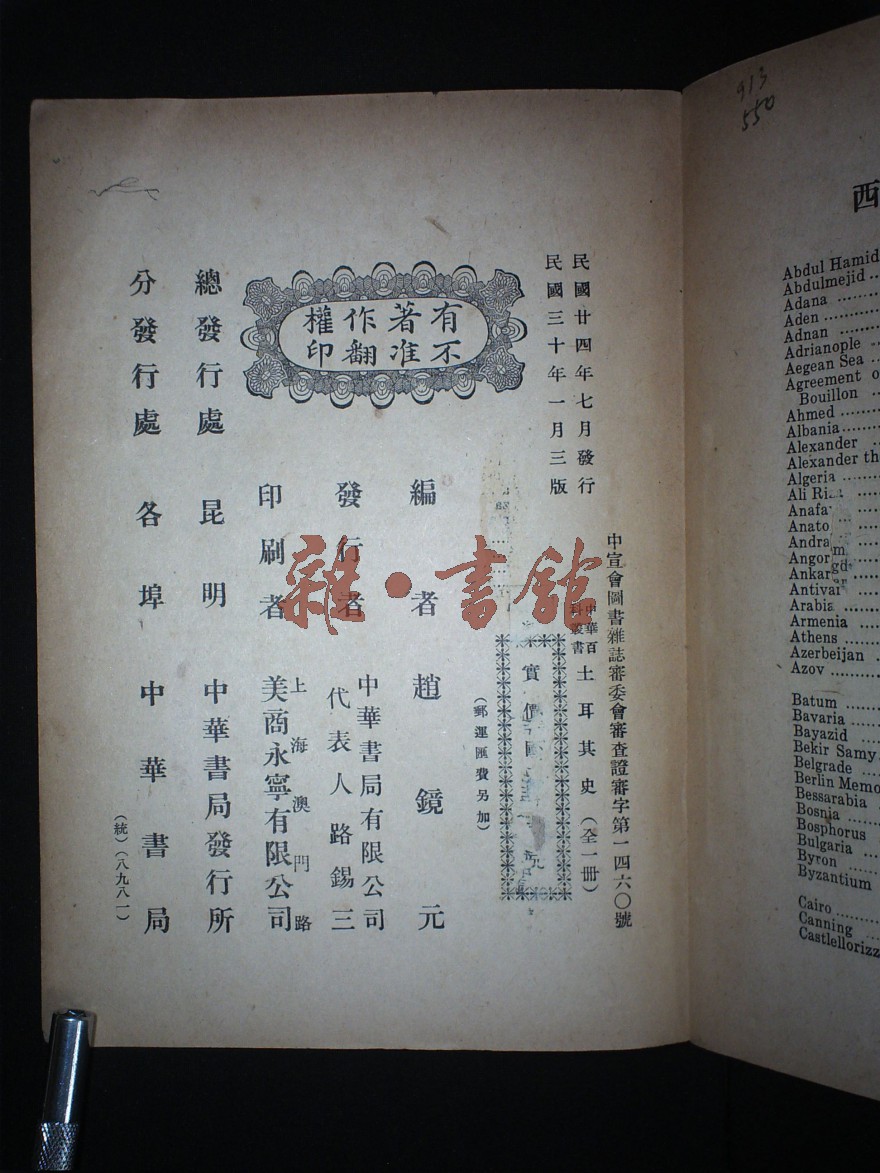 民國廿四年七月發行
民國三十年一月三版
中宣會圖書雜誌審委會審查證審字第一四六〇號
中華百科叢書
土耳其史(全一冊)
實價國
(郵運匯費另加)
有著作權
不准翻印
編者 趙鏡元
發行者 中華書局有限公司
代表人路錫三
印刷者 上海澳門路
美商永寧有限公司
總發行處 昆明 中華書局發行所
分發行處 各埠 中華書局
(統)(八九八一)
雜·書館
913
550
西
Abdul Hamid
Abdulmejid
Adana
Aden
Adnan
Adrianople
Aegean Sea
Agreement o
Bouillon
Ahmed
Albania
Alexander
Alexander th
Algeria
Ali Ri
Anafa
Anato
Andra
Angor
Ankar
Antivar
Arabia
Armenia
Athens
Azerbeijan
Azov
Batum
Bavaria
Bayazid
Bekir Samy
Belgrade
Berlin Memo
Bessarabia
Bosnia
Bosphorus
Bulgaria
Byron
Byzantium
Cairo
Canning
Castlellorizz